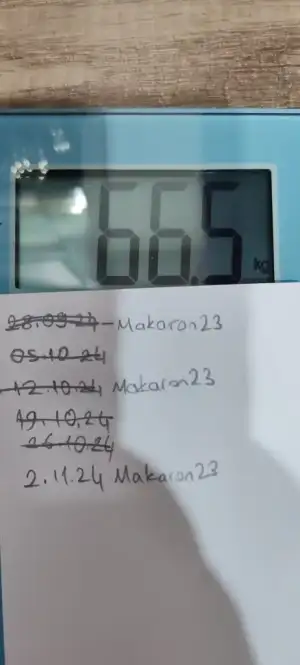 66.5 kg
28.09.24 - Makaron23
05.10.24
12.10.24 Makaron23
19.10.24
26.10.24
2.11.24 Makaron23